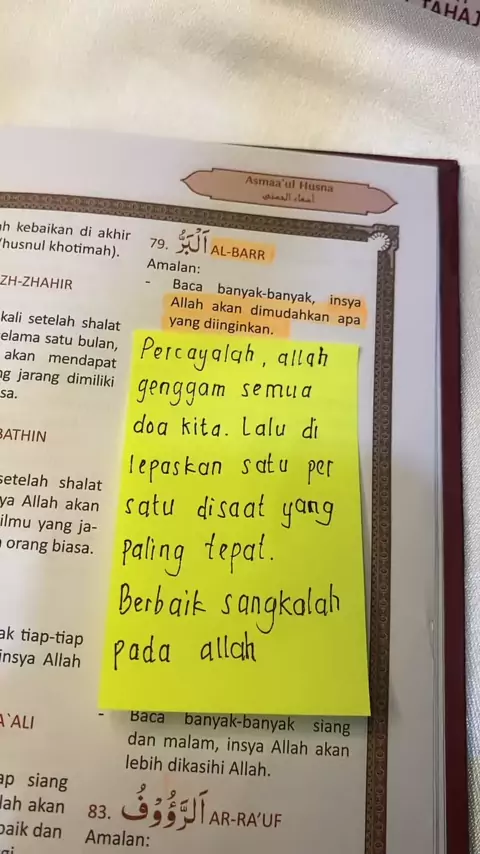 TAHAJ
Asmaa'ul Husna
أسماء الحسنى
kebaikan di akhir
(husnul khotimah).
ZH-ZHAHIR
kali setelah shalat
elama satu bulan,
akan mendapat
g jarang dimiliki
sa.
BATHIN
setelah shalat
ya Allah akan
ilmu yang ja-
orang biasa.
ak tiap-tiap
insya Allah
A`ALI
ap siang
lah akan
baik dan
79. اَلْبَرُّ AL-BARR
Amalan:
- Baca banyak-banyak, insya
Allah akan dimudahkan apa
yang diinginkan.
Percayalah, allah
genggam semua
doa kita. Lalu di
lepaskan satu per
satu disaat yang
paling tepat.
Berbaik sangkalah
pada allah
- Baca banyak-banyak siang
dan malam, insya Allah akan
lebih dikasihi Allah.
83. اَلرَّؤُوْفُ AR-RA'UF
Amalan: